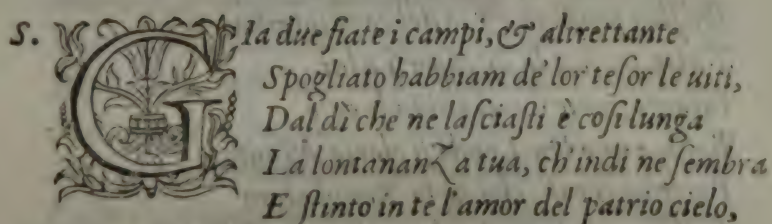 S. GIa due fiate i campi, & altrettante
Spogliato habbiam de' lor tesor le uiti,
Dal dì che ne lasciasti è cosi lunga
La lontananza tua, ch'indi ne sembra
E stinto in te l'amor del patrio cielo,